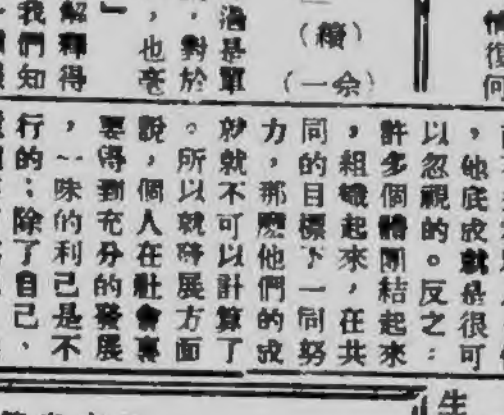 情復何
（續）
（一余）
過是單
，對於
，也毫
』
解釋得
我們知
，他底成就是很可
以忽視的。反之：
許多個體團結起來
，組織起來，在共
同的目標下一同努
力，那麼他們的成
就就不可以計算了
。所以就發展方面
說，個人在社會裏
要得到充分的發展
，一味的利己是不
行的；除了自己、
生